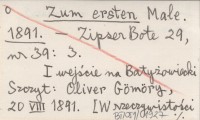 Zum ersten Male.
1891. — Zipser Bote 29,
nr 39: 3.
I wejście na Batyżowiecki
Szczyt: Oliver Gömöry,
20 VIII 1891. [W rzeczywistości